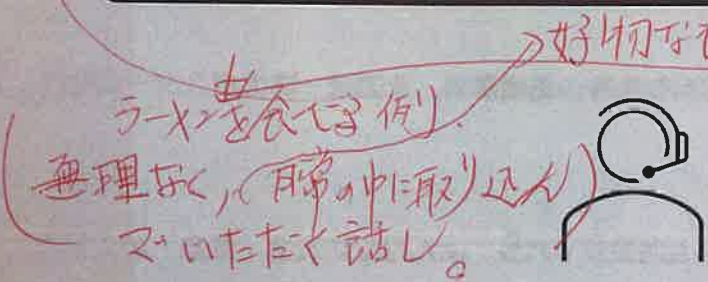 ラーメンを食べる例り.
無理なく,(日常の中に取り込ん)
でいただく話し。